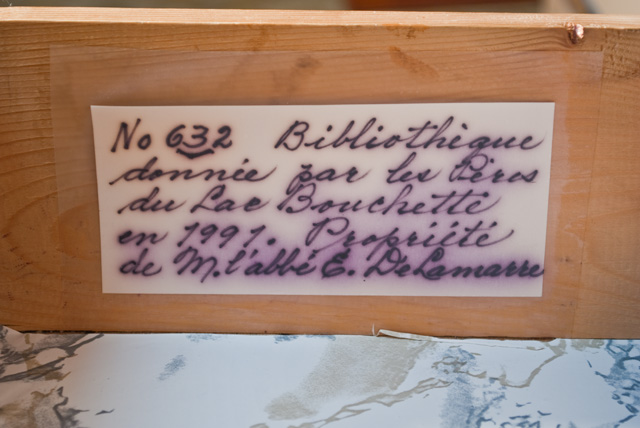 No 632 Bibliothèque
donnée par les Pères
du Lac Bouchette
en 1991. Propriété
de M. l'abbé E. DeLamarre